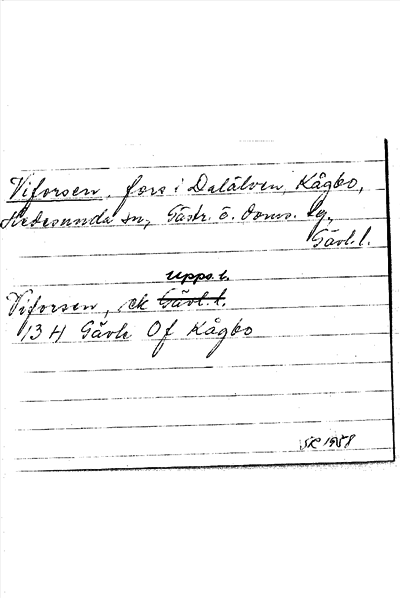 Viforsen, fors i Dalälven, Kågbo,
Hedesunda sn, Gästr. ö. doms. lg.,
Gävl. l.
Upps. l.
Viforsen, ek Gävl. l.
13 H Gävle Of Kågbo
SR 1958